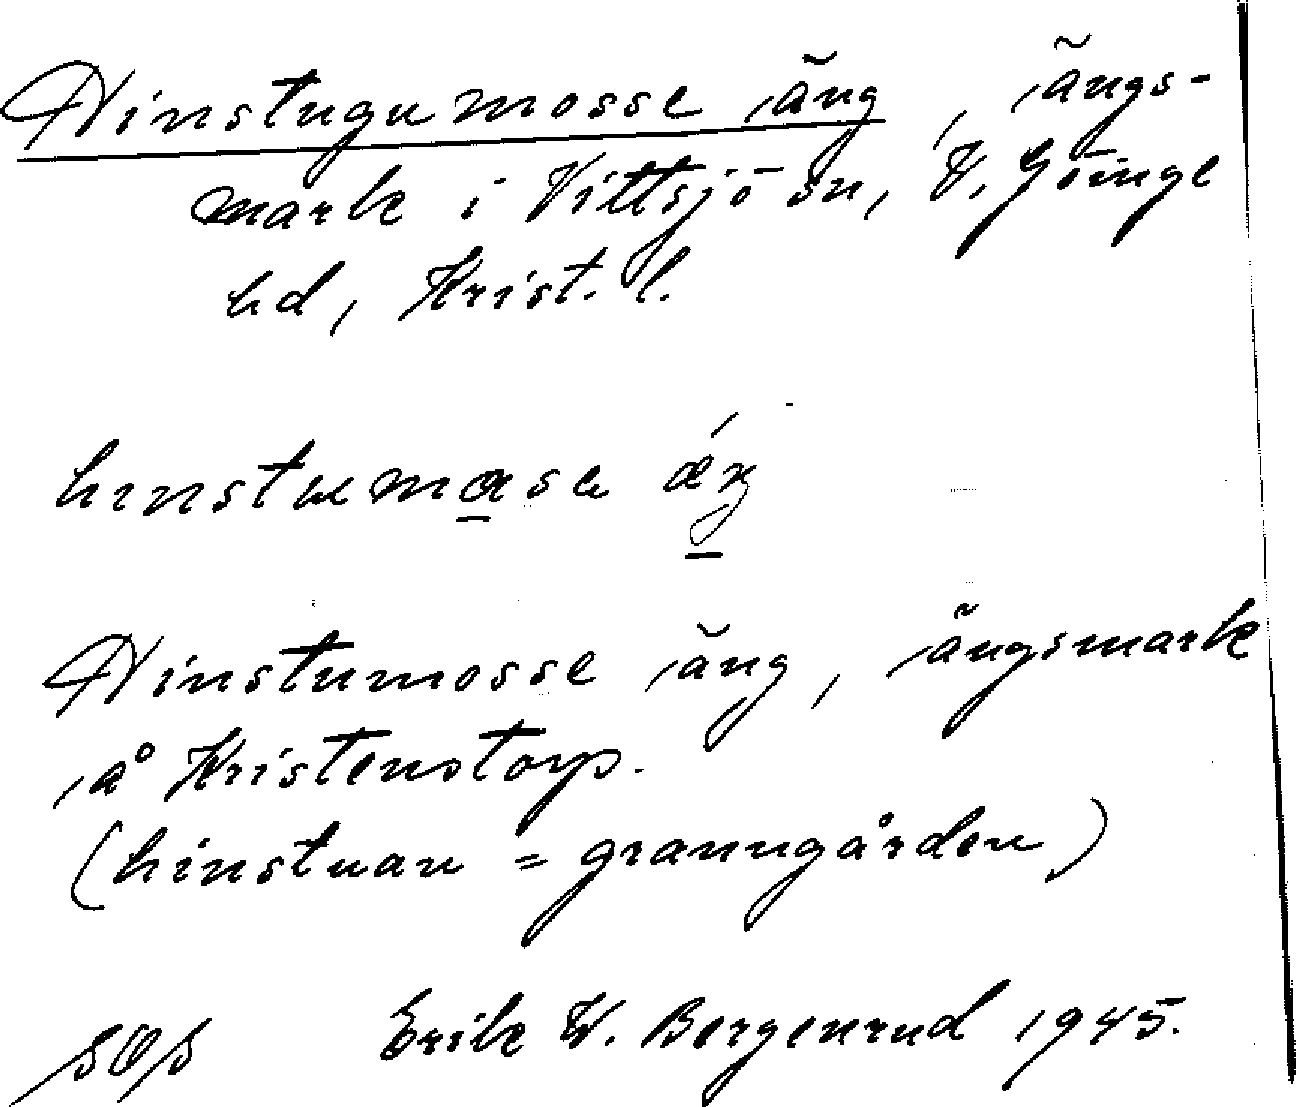 Hinstugumosse äng, ängs-
mark i Vittsjö sn, V. Göinge
hd, Krist. l.
hinstuemose
Hinstumosse äng, ängsmark
å Kristenstorp.
(hinstuan = granngården)
Erik W. Bergenrud 1945.